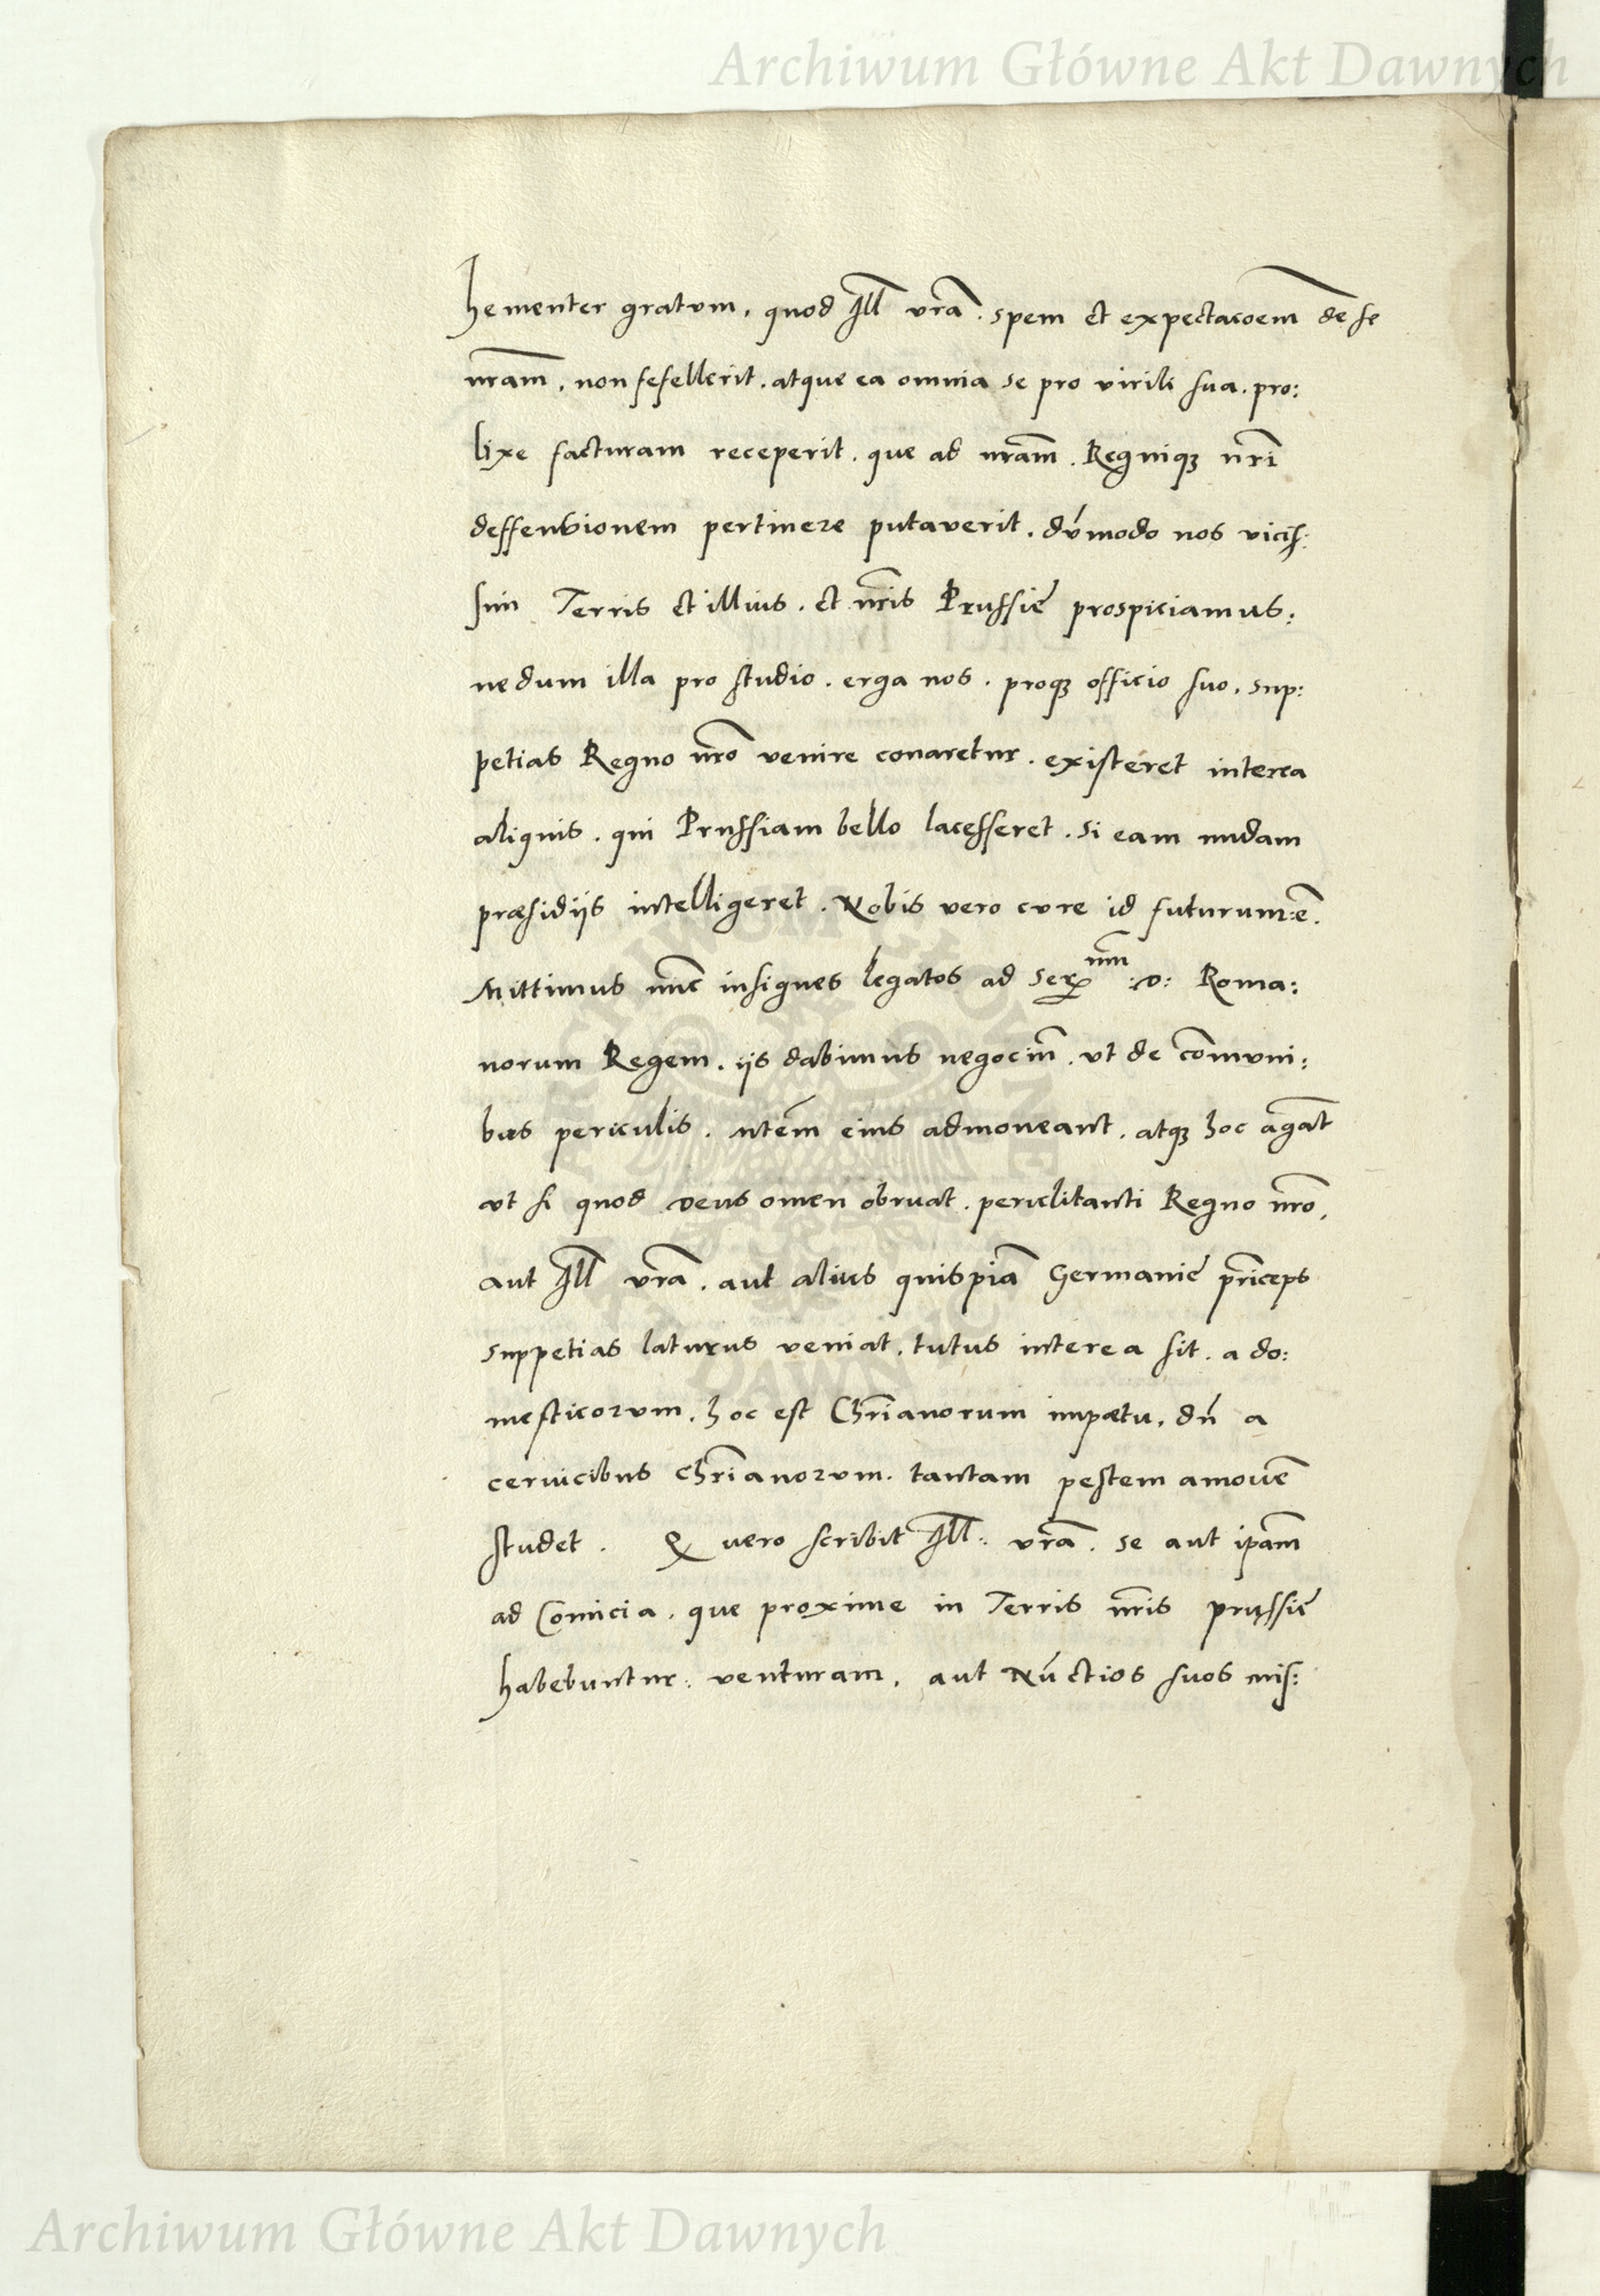 Archiwum Główne Akt Dawnych
hementer gratum, quod Ill vra͂. spem et expectaco͂em de se
nra͂m, non fefellerit. atque ea omnia se pro virili sua. pro:
lixe facturam receperit. que ad nra͂m. Regniqꝫ nr͂i
deffensionem pertinere putaverit. du͂modo nos vicis:
sim Terris et illius. et nr͂is Prussie prospiciamus:
nedum illa pro studio. erga nos. proqꝫ officio suo, sup:
petias Regno nr͂o venire conaretur. existeret interea
aliquis. qui Prussiam bello lacesseret. si eam nudam
præsidijs intelligeret. Nobis vero cure id futurum: e͂.
Mittimus nu͂c insignes legatos ad Ser nm͂ :D: Roma:
norum Regem. ijs dabimus negociu͂. ut de co͂muni:
bus periculis. mte͂m eius admoneant. atqꝫ hoc aga͂t
ut si quod Deus omen obruat. periclitanti Regno nr͂o,
aut Ill vra͂. aut alius quispia͂ Germanie pri͂ceps
suppetias laturus veniat. tutus interea sit. a do:
mesticorum. hoc est Chri͂anorum impetu. du͂ a
cervicibus chri͂anorum. tantam pestem amove͂
studet. Q vero scribit Ill: vra͂. se aut ip͂am
ad Comicia. que proxime in Terris nr͂is prussie
habebuntur: venturam, aut Nu͂ctios suos mis:
Archiwum Główne Akt Dawnych